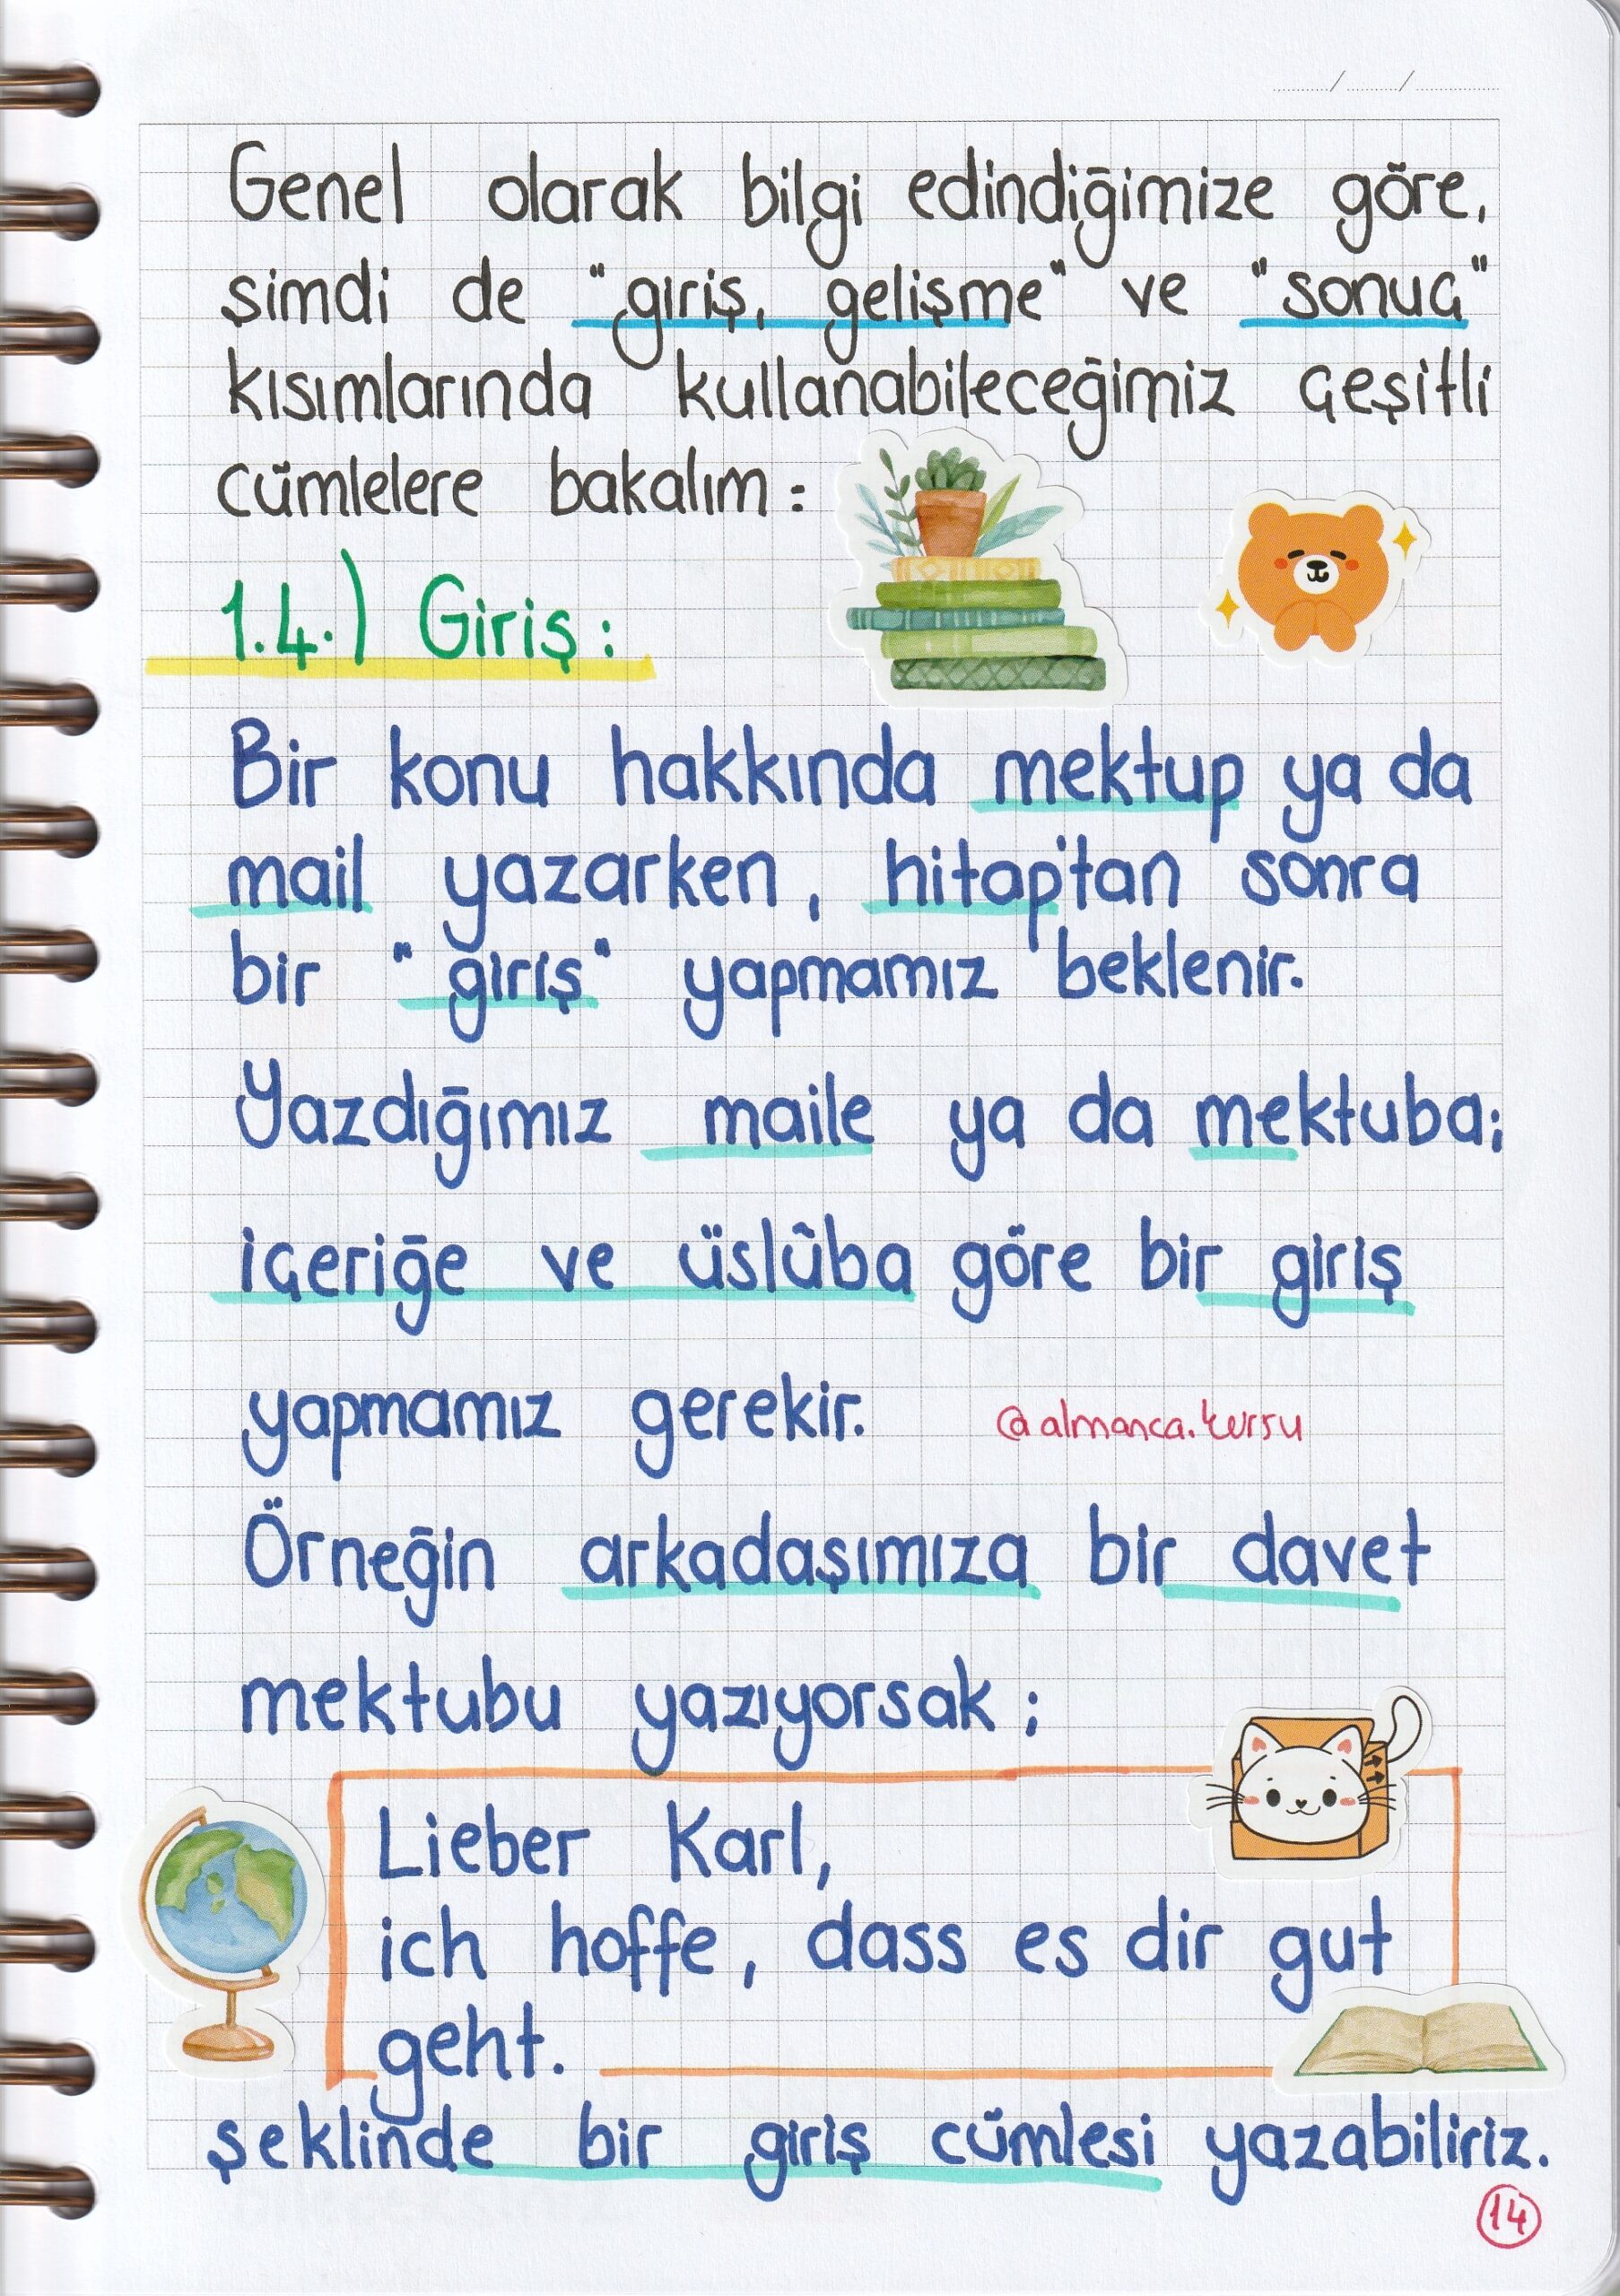 Genel olarak bilgi edindiğimize göre,
şimdi de "giriş, gelişme" ve "sonuç"
kısımlarında kullanabileceğimiz çeşitli
cümlelere bakalım :
1.4.) Giriş :
Bir konu hakkında mektup ya da
mail yazarken, hitap'tan sonra
bir "giriş" yapmamız beklenir.
Yazdığımız maile ya da mektuba;
içeriğe ve üslûba göre bir giriş
yapmamız gerekir.
@almanca.kursu
Örneğin arkadaşımıza bir davet
mektubu yazıyorsak ;
Lieber Karl,
ich hoffe, dass es dir gut
geht.
şeklinde bir giriş cümlesi yazabiliriz.
14